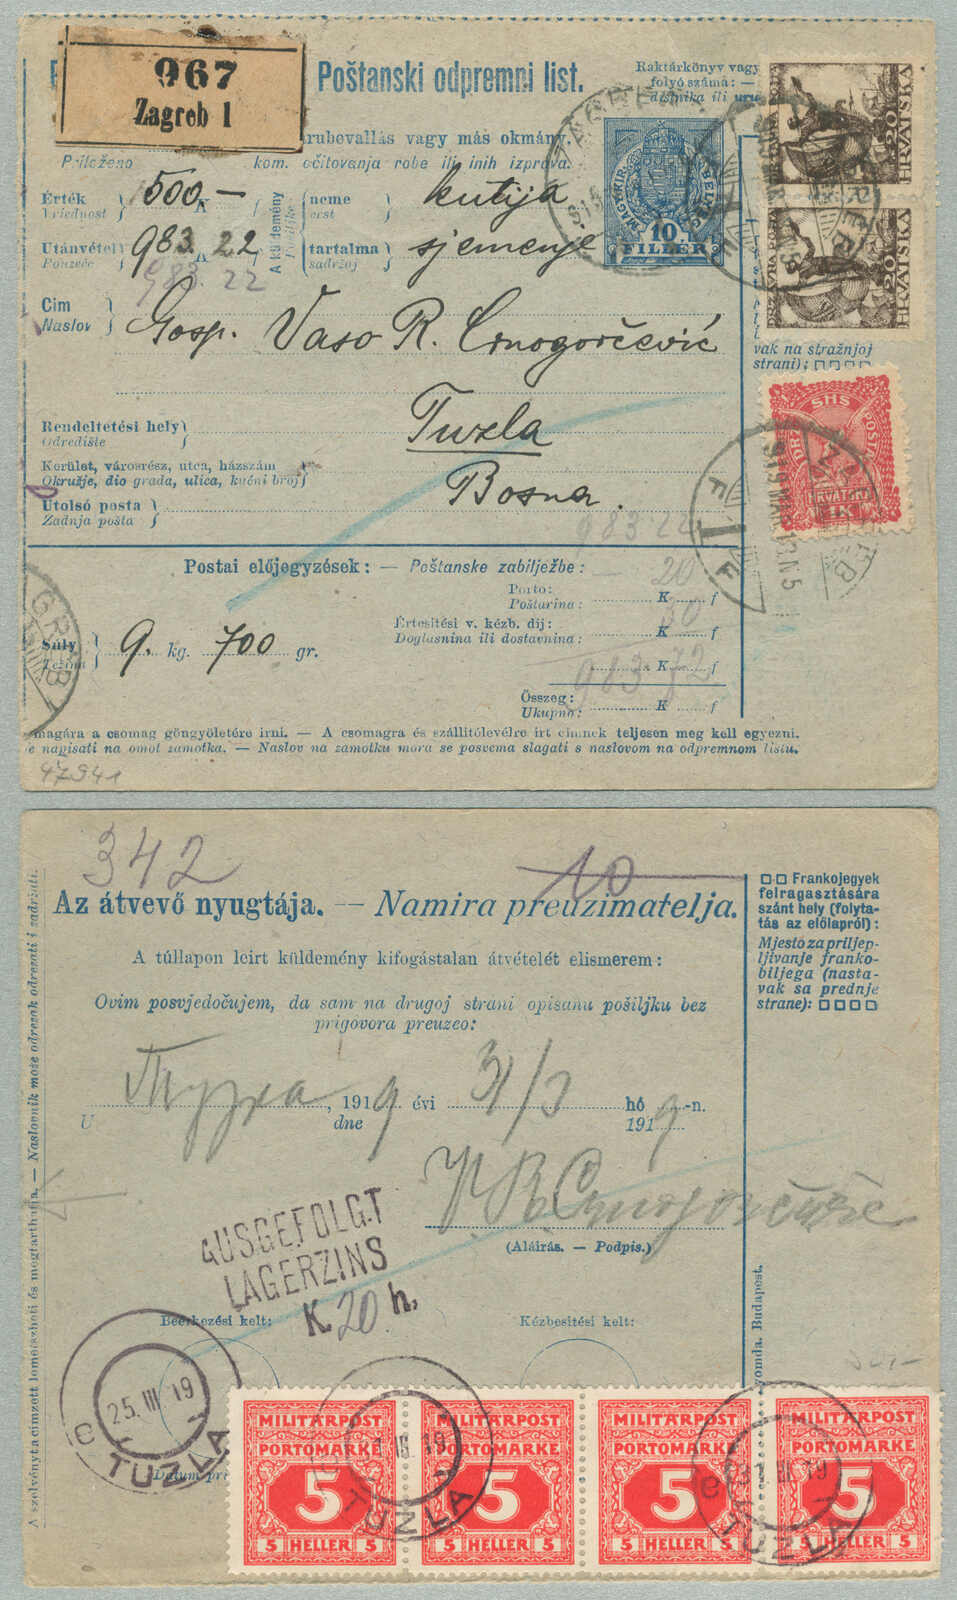 967
Zagreb 1
Poštanski odpremni list.
Raktárkönyv vagy
folyó száma: —
dišnika ili uru
rubevallás vagy más okmány.
Priloženo kom. očitovanja robe ili inih izprava.
MAGY. KIR. BELJEG
10
FILLÉR
20 HRVATSKA
DRŽAVNA POŠTA
20 HRVATSKA
Érték
Vriednost
500,— K
A küldemény
neme
vrst
kutija
Utánvétel
Pouzeće
983 22
983.22
tartalma
sadržaj
sjemenje
Cim
Naslov
Gosp. Vaso R. Crnogorčević
vak na stražnjoj
strani):
SHS
POŠTA
HRVATSKA
1K
Rendeltetési hely
Odredište
Tuzla
Kerület, városrész, utca, házszám
Okružje, dio grada, ulica, kućni broj
Bosna.
Utolsó posta
Zadnja pošta
983.22
ZAGREB
919 MAR. 13. N 5
Postai előjegyzések: — Poštanske zabilježbe: —
20
Porto:
Poštarina: K f
30
Értesítési v. kézb. díj:
Doglasnina ili dostavnina: K f
Súly
Težina
9. kg. 700 gr.
K f
983 72
Összeg:
Ukupno: K f
magára a csomag göngyöletére irni. — A csomagra és szállitólevélre irt címnek teljesen meg kell egyezni.
e napisati na omot zamotka. — Naslov na zamotku mora se posvema slagati s naslovom na odpremnom listu.
47941
342
10
Az átvevő nyugtája. — Namira preuzimatelja.
Frankojegyek
felragasztására
szánt hely (folyta-
tás az előlapról):
Mjesto za priljep-
ljivanje franko-
biljega (nasta-
vak sa prednje
strane):
A túllapon leirt küldemény kifogástalan átvételét elismerem:
Ovim posvjedočujem, da sam na drugoj strani opisanu pošiljku bez
prigovora preuzeo:
U Тузла, 1919 évi 31/3 hó 9-n.
dne 191
(Aláírás. — Podpis.)
AUSGEFOLGT
LAGERZINS
K 20 h.
Beérkezési kelt:
Kézbesítési kelt:
A szelvényt a címzett lemetszheti és megtarthatja. — Naslovnik može odrezak odrezati i zadržati.
yomda. Budapest.
25. III 19
TUZLA
Datum pri
MILITÄRPOST
PORTOMARKE
5
5 HELLER 5
MILITÄRPOST
PORTOMARKE
5
5 HELLER 5
MILITÄRPOST
PORTOMARKE
5
5 HELLER 5
MILITÄRPOST
PORTOMARKE
5
5 HELLER 5
31 III 19
TUZLA
31 III 19
TUZLA